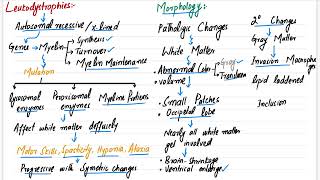 Leukodystrophies:
Autosomal recessive / x linked
Genes → Myelin
Synthesis
Turnover
Myelin Maintenance
Mutation
Lysosomal enzymes
Proxisomal enzymes
Myeline Proteins
Affect white matter diffusely
Motor Skills, Spasticity, Hyponia, Ataxia
Progressive with Symetric changes
Morphology:
Pathologic Changes
White Matter
Abnormal Color
Gray
Translucen
• volume ↓
• Small Patches
• Occipital lobe
Nearly all white matter get involved
• Brain Shrinkage
• Ventrical enlarge
2° Changes
Gray Matter
Invasion Macrophage
lipid laddened
Inclusion